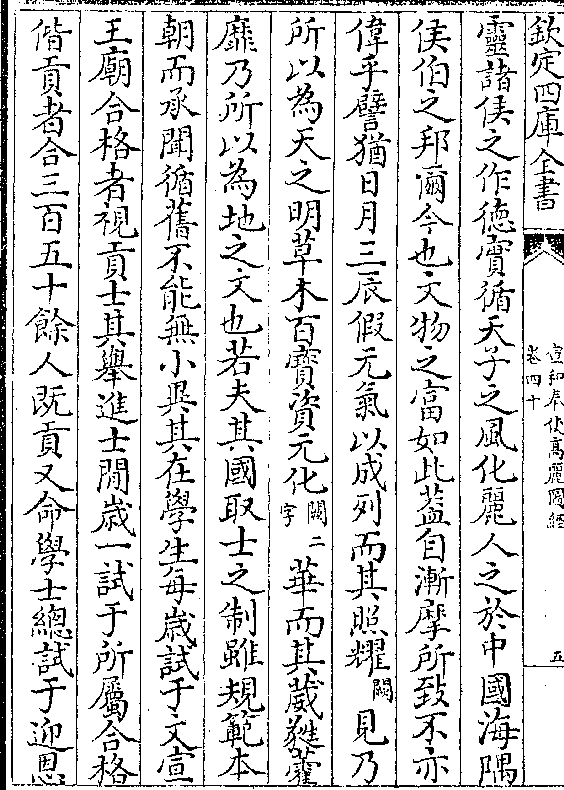 欽定四庫全書
宣和奉使高麗圖經
卷四十
五
靈諸侯之作德實循天子之風化麗人之於中國海隅
侯伯之邦爾今也文物之富如此蓋自漸摩所致不亦
偉乎譬猶日月三辰假元氣以成列而其照耀闕見乃
所以為天之明草木百寳資元化闕二字華而其葳蕤藿
靡乃所以為地之文也若夫其國取士之制雖規範本
朝而承聞循舊不能無小異其在學生每歲試于文宣
王廟合格者視貢士其舉進士閒歲一試于所屬合格
偕貢者合三百五十餘人既貢又命學士總試于迎恩